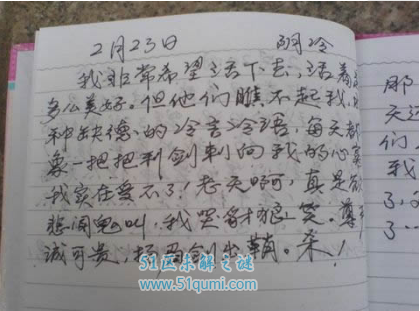 2月23日 阴冷
我非常希望活下去,活着
多么美好。但他们瞧不起我,
种缺德的冷言冷语,每天都
象一把把利剑刺向我的心
我实在受不了!老天啊,真是欲
悲闻鬼叫,我哭豺狼笑。尊
诚可贵,扬眉剑出鞘。杀!
51区未解之谜
www.51qumi.com
那
天
们
我
了,
了…